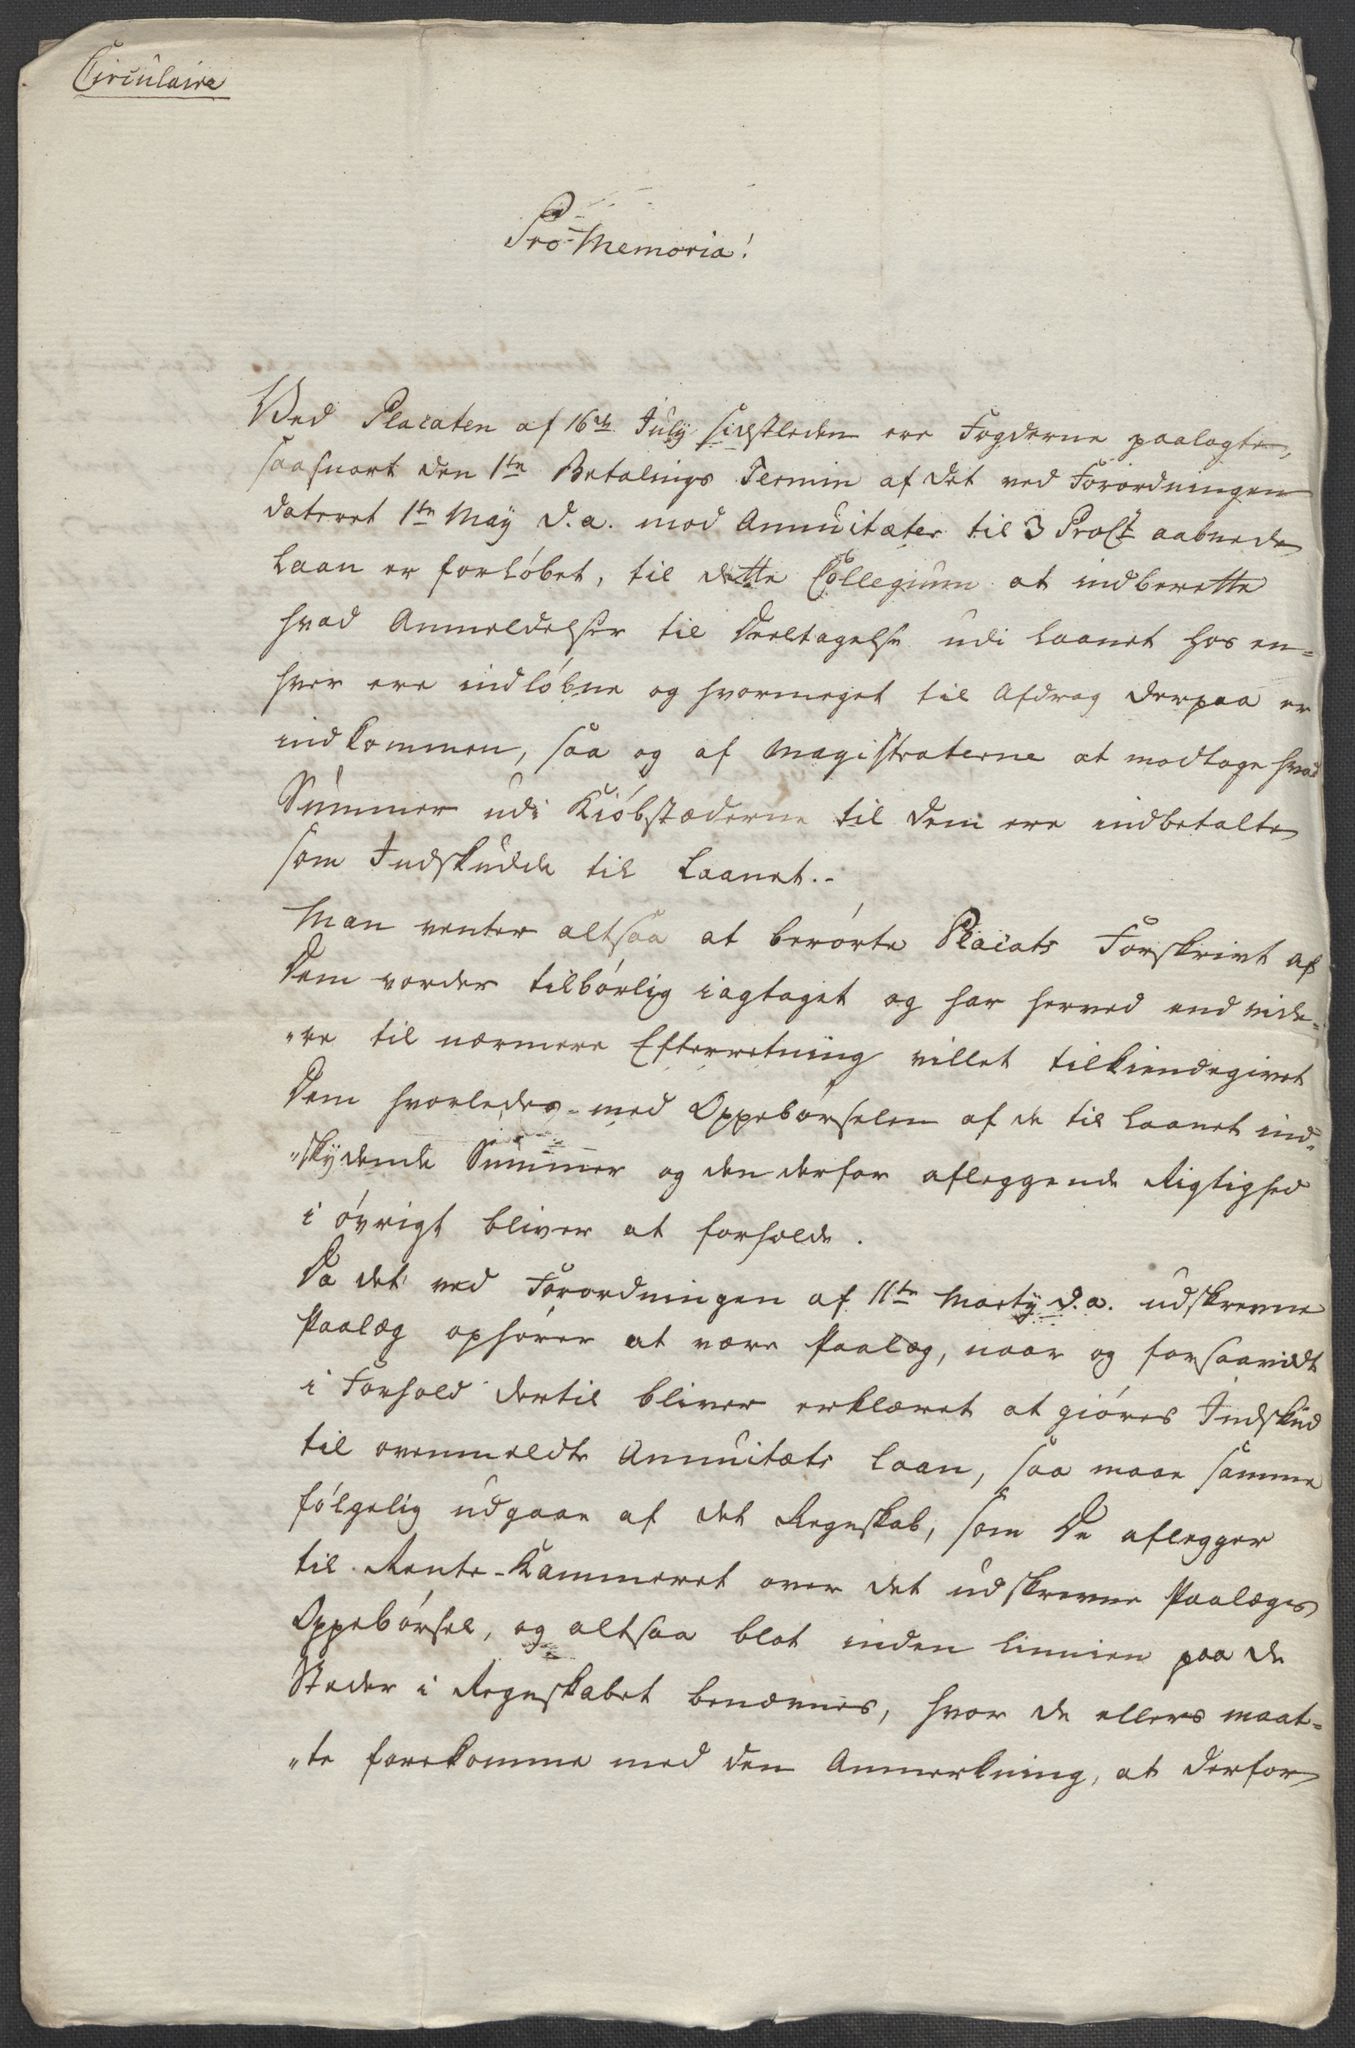 Circulaire
Pro Memoria!
Ved Placaten af 16de July sidstleden ere Fogderne paalagte,
saasnart den 1te Betalings Termin af det ved Forordningen
dateret 1te May d.a. mod Annuitæter til 3 ProCt aabnede
Laan er forløbet, til dette Collegium at indberette
hvad Anmeldelser til Deeltagelse udi Laanet hos en-
hver ere indløbne og hvormeget til Afdrag derpaa er
indkommen, saa og af Magistraterne at modtage hvad
Summer udi Kiøbstæderne til dem ere indbetalte
som Indskudde til Laanet.-
Man venter altsaa at berørte Placats Forskrivt af
Dem vorder tilbørlig iagtaget og har herved end vide-
"re til nærmere Efterretning villet tilkiendegivet
Dem hvorledes med Oppebørselen af de til Laanet ind-
"skydende Summer og den derfor afleggende Rigtighed
i øvrigt bliver at forholde.
Da det ved Forordningen af 11te Martÿ d.a. udskrevne
Paalæg ophører at være Paalæg, naar og forsaavidt
i Forhold dertil bliver erklæret at giøres Indskud
til ovenmeldte Annuitæts Laan, saa maae samme
følgelig udgaae af det Regnskab, som De aflegger
til Rente-Kammeret over det udskrevne Paalægs
Oppebørsel, og altsaa blot inden Linnien paa de
Steder i Regnskabet benævnes, hvor de ellers maat-
"te forekomme med den Anmerkning, at derfor